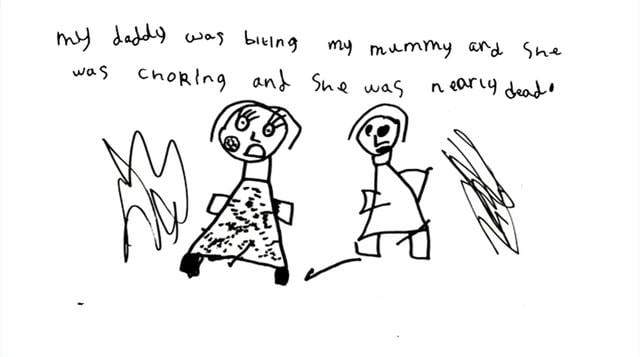 my daddy was biting my mummy and she
was choking and she was nearly dead.